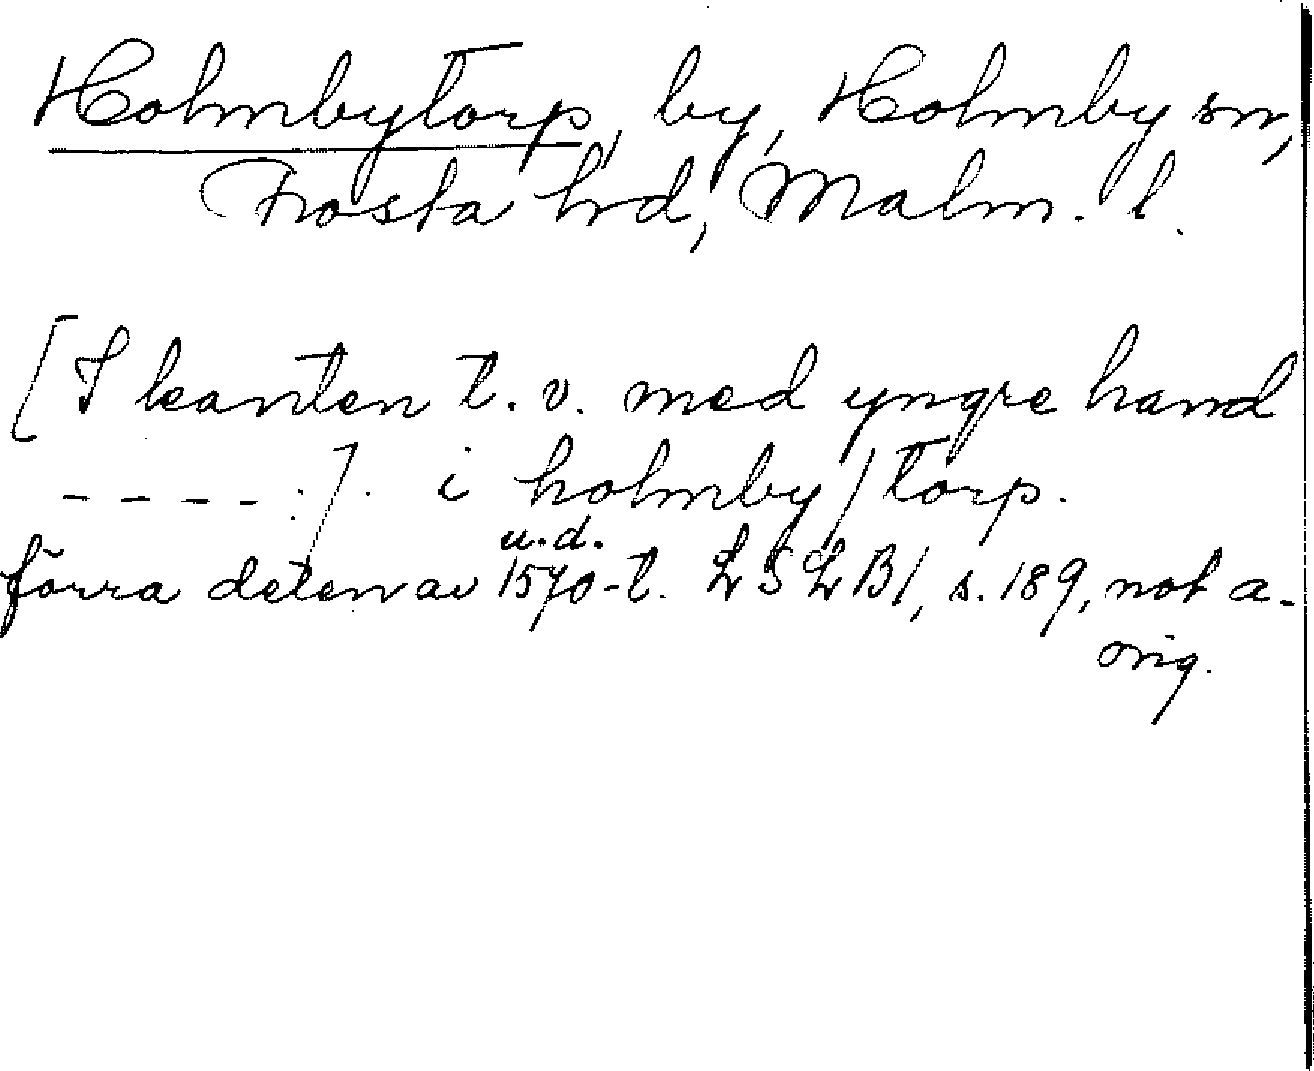 Holmbytorp, by, Holmby sn,
Frosta hrd, Malm. l.
[I kanten t. v. med yngre hand
- - - - :]. i holmby/torp.
u.d.
förra delen av 1570-t. LSLB1, s. 189, not a.
orig.